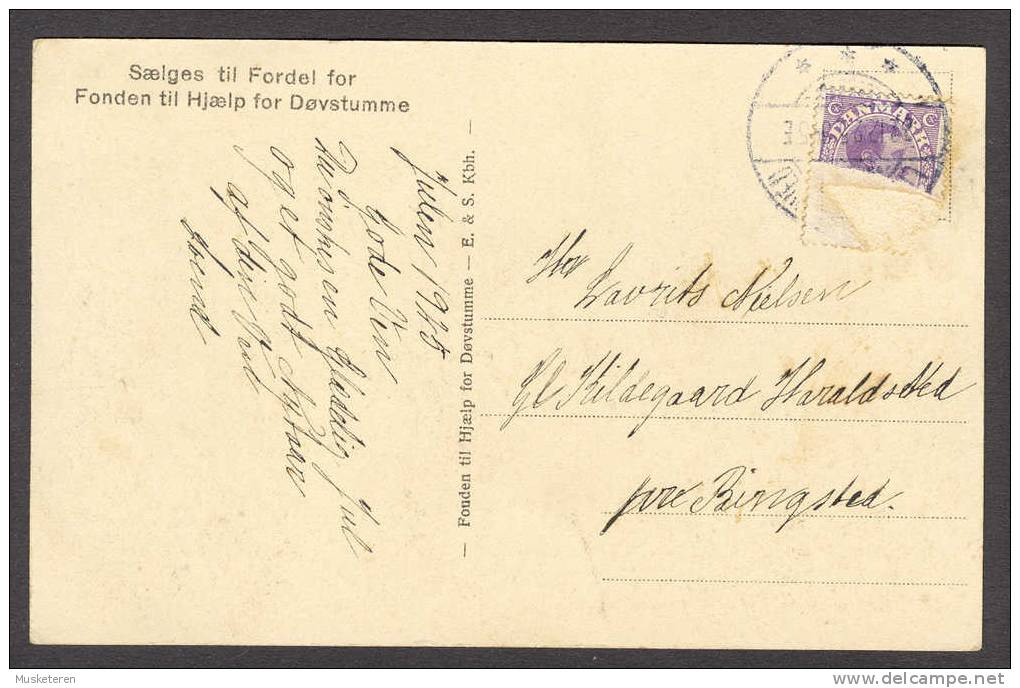 Sælges til Fordel for
Fonden til Hjælp for Døvstumme
Julen 1925
Gode Ven
Dig ønskes en Glædelig Jul
og et godt Nytaar
af din Ven
Svend
— Fonden til Hjælp for Døvstumme — E. & S. Kbh. —
DANMARK
Hr
Lavrits Nielsen
Gl Kildegaard Haraldsted
pr Ringsted.
Musketeren
delcampe.net